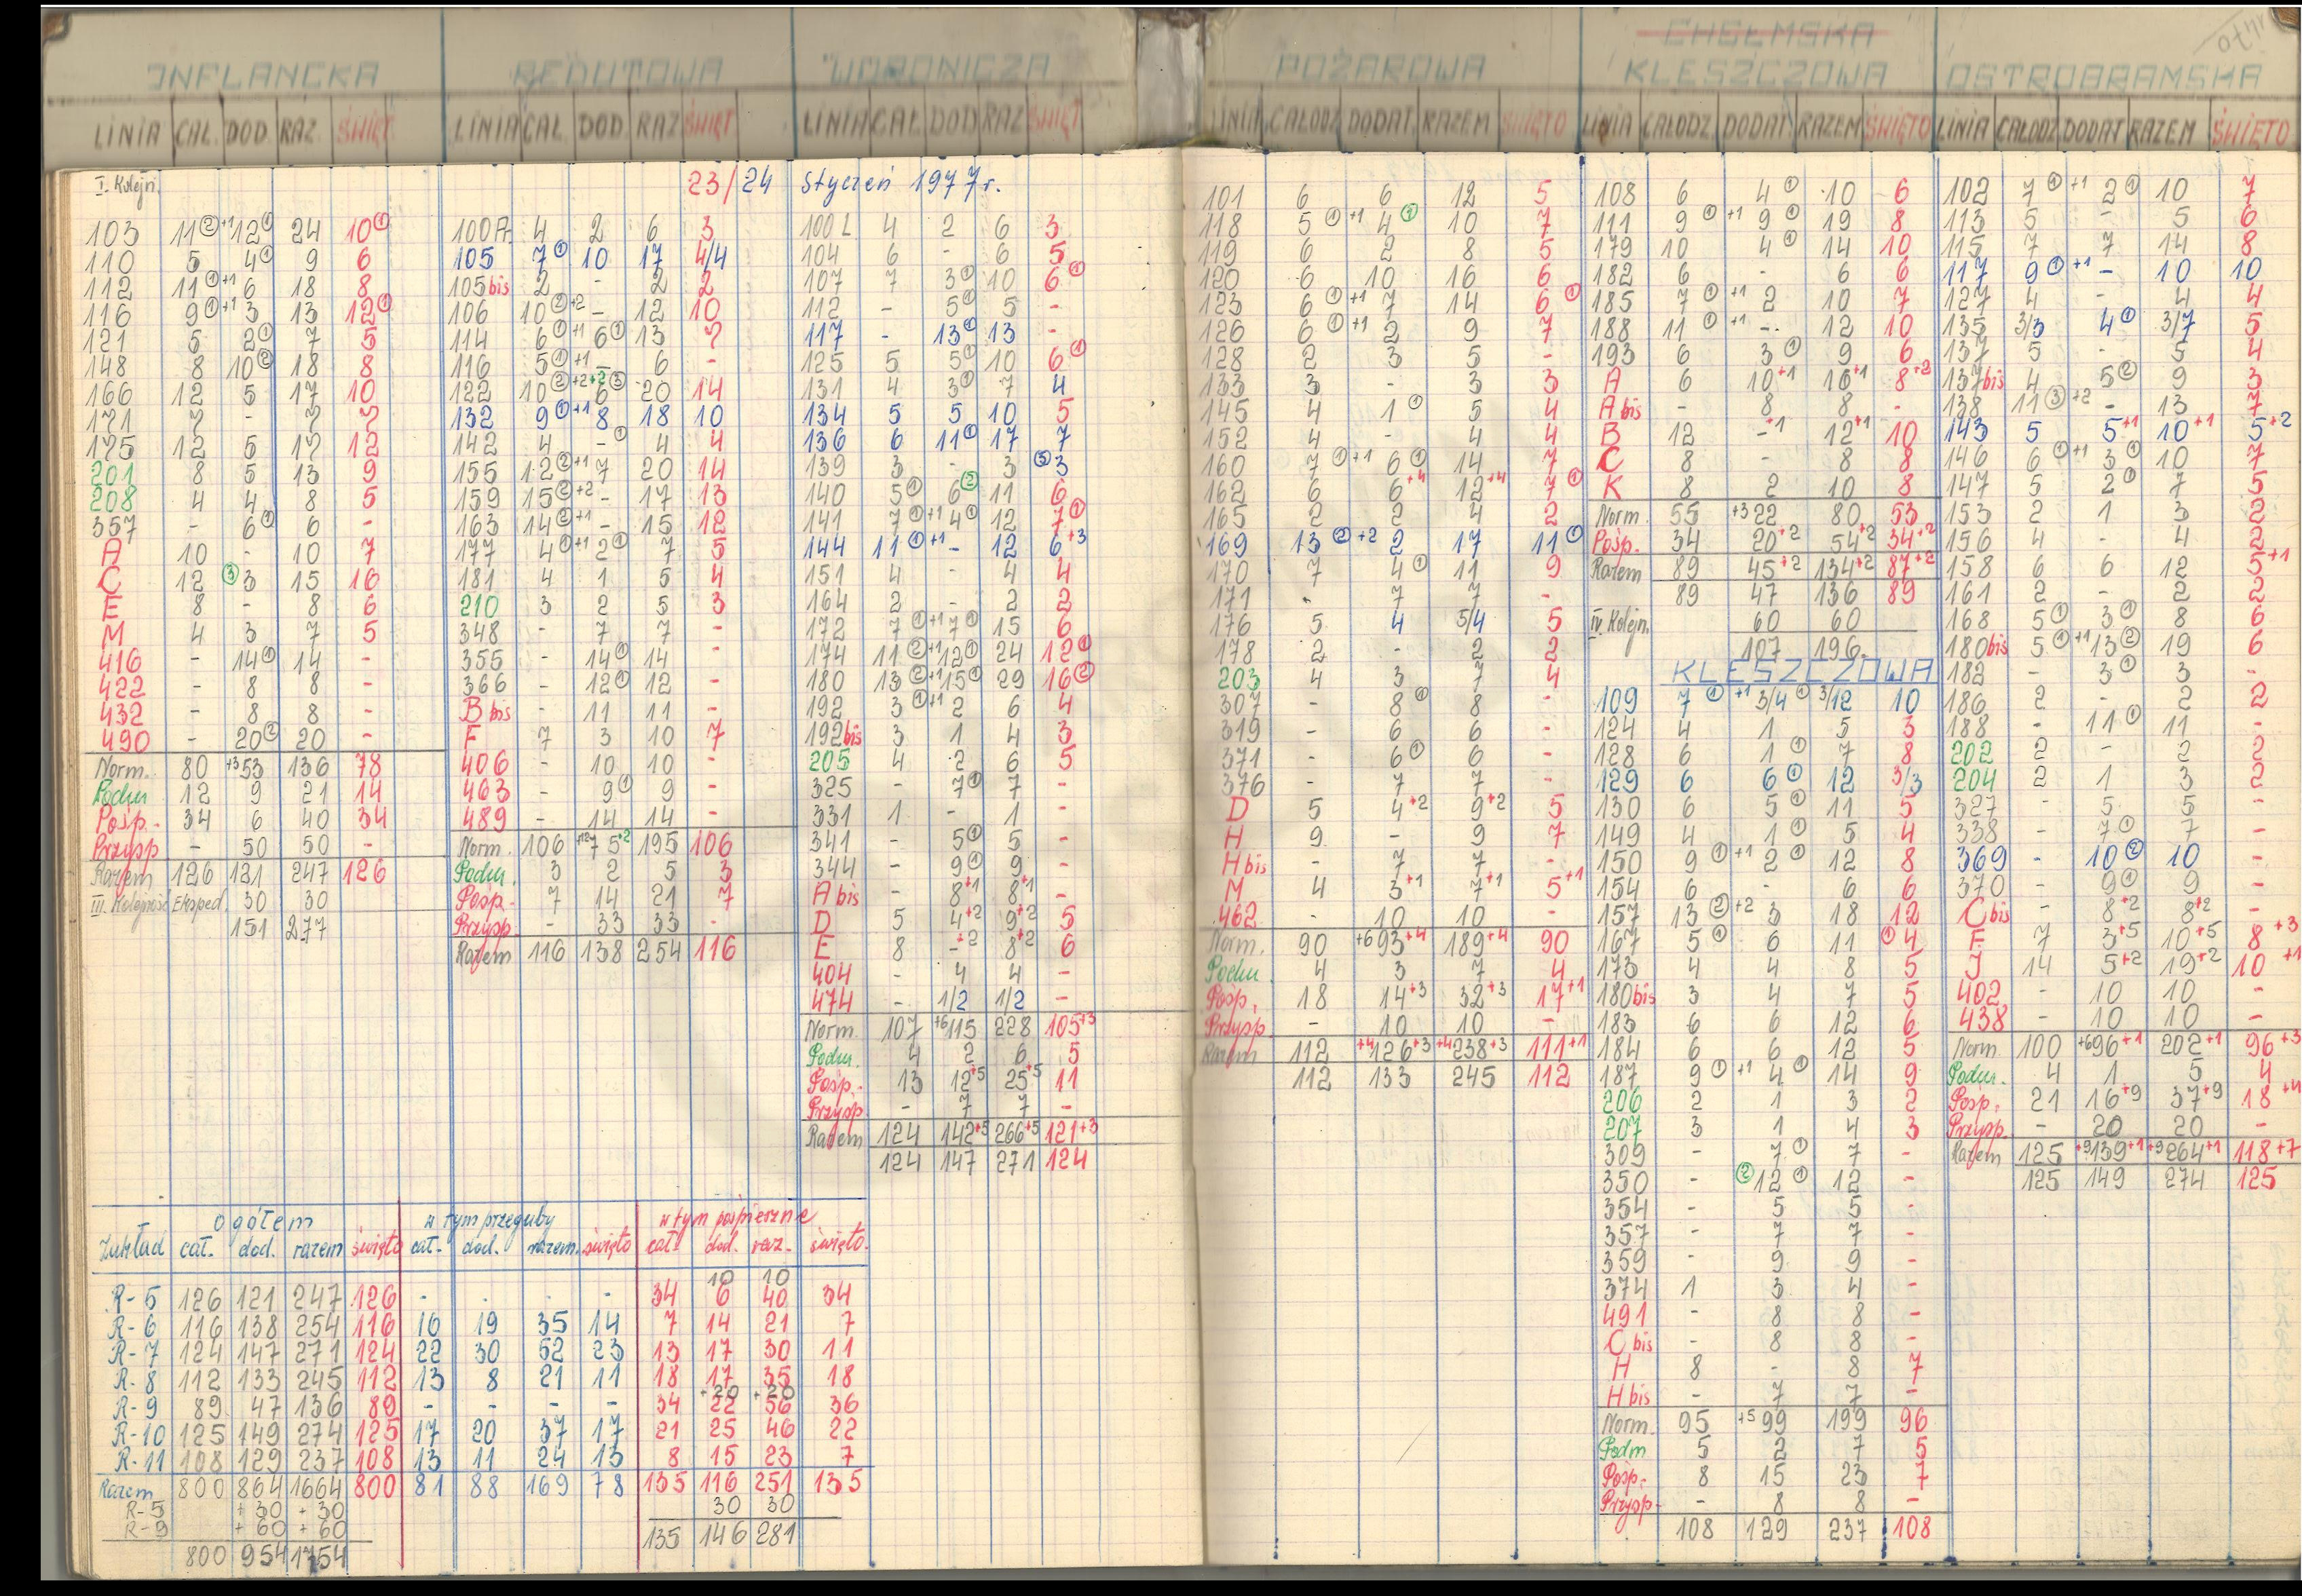 INFLANCKA
LINIA CAŁ. DOD. RAZ. ŚWIĘT.
I. Kolejn.
103 11②+1 12① 24 10①
110 5 4① 9 6
112 11①+1 6 18 8
116 9①+1 3 13 12①
121 5 2① 7 5
148 8 10② 18 8
166 12 5 17 10
171 7 - 7 7
175 12 5 17 12
201 8 5 13 9
208 4 4 8 5
357 - 6① 6 -
A 10 - 10 7
C 12 ③3 15 16
E 8 - 8 6
M 4 3 7 5
416 - 14① 14 -
422 - 8 8 -
432 - 8 8 -
490 - 20② 20 -
Norm. 80 +3 53 136 78
Podm 12 9 21 14
Posp. 34 6 40 34
Przysp - 50 50 -
Razem 126 121 247 126
III. Kolejność Eksped. 30 30
151 277
REDUTOWA
LINIA CAŁ. DOD. RAZ ŚWIĘT
23/24 styczeń 1977 r.
100A. 4 2 6 3
105 7① 10 17 4/4
105 bis 2 - 2 2
106 10②+2 - 12 10
114 6①+1 6① 13 7
116 5①+1 - 6 -
122 10②+2+2 6③ 20 14
132 9①+1 8 18 10
142 4 -① 4 4
155 12②+1 7 20 14
159 15②+2 - 17 13
163 14②+1 - 15 12
177 4①+1 2① 7 5
181 4 1 5 4
210 3 2 5 3
348 - 7 7 -
355 - 14① 14 -
366 - 12① 12 -
B bis - 11 11 -
F 7 3 10 7
406 - 10 10 -
463 - 9① 9 -
489 - 14 14 -
Norm. 106 75+2 195 106
Podm. 3 2 5 3
Posp. 7 14 21 7
Przysp. - 33 33 -
Razem 116 138 254 116
WORONICZA
LINIA CAŁ. DOD RAZ ŚWIĘT
100 L 4 2 6 3
104 6 - 6 5
107 7 3① 10 6①
112 - 5① 5 -
117 - 13① 13 -
125 5 5① 10 6①
131 4 3① 7 4
134 5 5 10 5
136 6 11① 17 7
139 3 - 3 ③3
140 5① 6② 11 6
141 7①+1 4① 12 7①
144 11①+1 - 12 6+3
151 4 - 4 4
164 2 - 2 2
172 7①+1 7① 15 6
174 11②+1 12① 24 12①
180 13②+1 15① 29 16②
192 3①+1 2 6 4
192 bis 3 1 4 3
205 4 2 6 5
325 - 7① 7 -
331 1 - 1 -
341 - 5① 5 -
344 - 9① 9 -
A bis - 8+1 8+1 -
D 5 4+2 9+2 5
E 8 -+2 8+2 6
404 - 4 4 -
474 - 1/2 1/2 -
Norm. 107 +6 115 228 105+3
Podm. 4 2 6 5
Posp. 13 12+5 25+5 11
Przysp - 7 7 -
Razem 124 142+5 266+5 121+3
124 147 271 124
Zakład ogółem w tym przeguby w tym pospieszne
cał. dod. razem święto cał. dod. razem. święto cał. dod. raz. święto.
10 10
R-5 126 121 247 126 - - - - 34 6 40 34
R-6 116 138 254 116 16 19 35 14 7 14 21 7
R-7 124 147 271 124 22 30 52 23 13 17 30 11
R-8 112 133 245 112 13 8 21 11 18 17 35 18
+20 +20
R-9 89 47 136 89 - - - - 34 22 56 36
R-10 125 149 274 125 17 20 37 17 21 25 46 22
R-11 108 129 237 108 13 11 24 13 8 15 23 7
Razem 800 864 1664 800 81 88 169 78 135 116 251 135
R-5 + 30 + 30 30 30
R-9 + 60 + 60
135 146 281
800 954 1754
POŻAROWA
LINIA CAŁODZ. DODAT. RAZEM ŚWIĘTO
101 6 6 12 5
118 5①+1 4② 10 7
119 6 2 8 5
120 6 10 16 6
123 6①+1 7 14 6①
126 6①+1 2 9 7
128 2 3 5 -
133 3 - 3 3
145 4 1① 5 4
152 4 - 4 4
160 7①+1 6① 14 7
162 6 6+4 12+4 7①
165 2 2 4 2
169 13②+2 2 17 11①
170 7 4① 11 9
171 - 7 7 -
176 5 4 5/4 5
178 2 - 2 2
203 4 3 7 4
307 - 8① 8 -
319 - 6 6 -
371 - 6① 6 -
376 - 7 7 -
D 5 4+2 9+2 5
H 9 - 9 7
H bis - 7 7 -
M 4 3+1 7+1 5+1
462 - 10 10 -
Norm. 90 +6 93+4 189+4 90
Podm 4 3 7 4
Posp. 18 14+3 32+3 17+1
Przysp - 10 10 -
Razem 112 +4 126+3 +4 238+3 111+1
112 133 245 112
CHEŁMSKA
KLESZCZOWA
LINIA CAŁODZ. DODAT. RAZEM ŚWIĘTO
108 6 4① 10 6
111 9①+1 9① 19 8
179 10 4① 14 10
182 6 - 6 6
185 7①+1 2 10 7
188 11①+1 - 12 10
193 6 3① 9 6
A 6 10+1 16+1 8+2
A bis - 8 8 -
B 12 -+1 12+1 10
C 8 - 8 8
K 8 2 10 8
Norm 55 +3 22 80 53
Posp. 34 20+2 54+2 34+2
Razem 89 45+2 134+2 87+2
89 47 136 89
IV. Kolejn. 60 60
107 196.
KLESZCZOWA
109 7①+1 3/4① 3/12 10
124 4 1 5 3
128 6 1① 7 8
129 6 6① 12 3/3
130 6 5① 11 5
149 4 1① 5 4
150 9①+1 2① 12 8
154 6 - 6 6
157 13②+2 3 18 12
167 5① 6 11 ①4
173 4 4 8 5
180bis 3 4 7 5
183 6 6 12 6
184 6 6 12 5
187 9①+1 4① 14 9
206 2 1 3 2
207 3 1 4 3
309 - 7① 7 -
350 - ②12① 12 -
354 - 5 5 -
357 - 7 7 -
359 - 9 9 -
374 1 3 4 -
491 - 8 8 -
C bis - 8 8 -
H 8 - 8 7
H bis - 7 7 -
Norm. 95 +5 99 199 96
Podm 5 2 7 5
Posp. 8 15 23 7
Przysp - 8 8 -
108 129 237 108
OSTROBRAMSKA
LINIA CAŁODZ. DODAT RAZEM ŚWIĘTO
102 7①+1 2① 10 7
113 5 - 5 6
115 7 7 14 8
117 9①+1 - 10 10
127 4 - 4 4
135 3/3 4① 3/7 5
137 5 - 5 4
137bis 4 5② 9 3
138 11③+2 - 13 7
143 5 5+1 10+1 5+2
146 6①+1 3① 10 7
147 5 2① 7 5
153 2 1 3 2
156 4 - 4 2
158 6 6 12 5+1
161 2 - 2 2
168 5① 3① 8 6
180bis 5①+1 13② 19 6
182 - 3① 3 -
186 2 - 2 2
188 - 11① 11 -
202 2 - 2 2
204 2 1 3 2
327 - 5 5 -
338 - 7① 7 -
369 - 10② 10 -
370 - 9① 9 -
C bis - 8+2 8+2 -
F 7 3+5 10+5 8+3
J 14 5+2 19+2 10+1
402 - 10 10 -
438 - 10 10 -
Norm 100 +6 96+1 202+1 96+3
Podm. 4 1 5 4
Posp. 21 16+9 37+9 18+4
Przysp. - 20 20 -
Razem 125 +9 139+1 +9 264+1 118+7
125 149 274 125